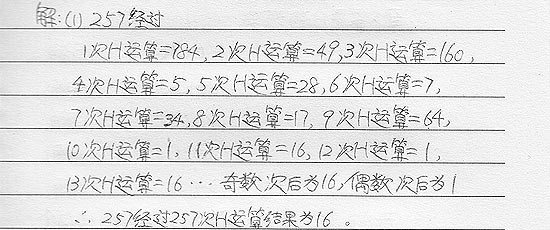 解:(1) 257经过
1次H运算=784,2次H运算=49,3次H运算=160,
4次H运算=5,5次H运算=28,6次H运算=7,
7次H运算=34,8次H运算=17,9次H运算=64,
10次H运算=1,11次H运算=16,12次H运算=1,
13次H运算=16…奇数次后为16,偶数次后为1
∴257经过257次H运算结果为16。